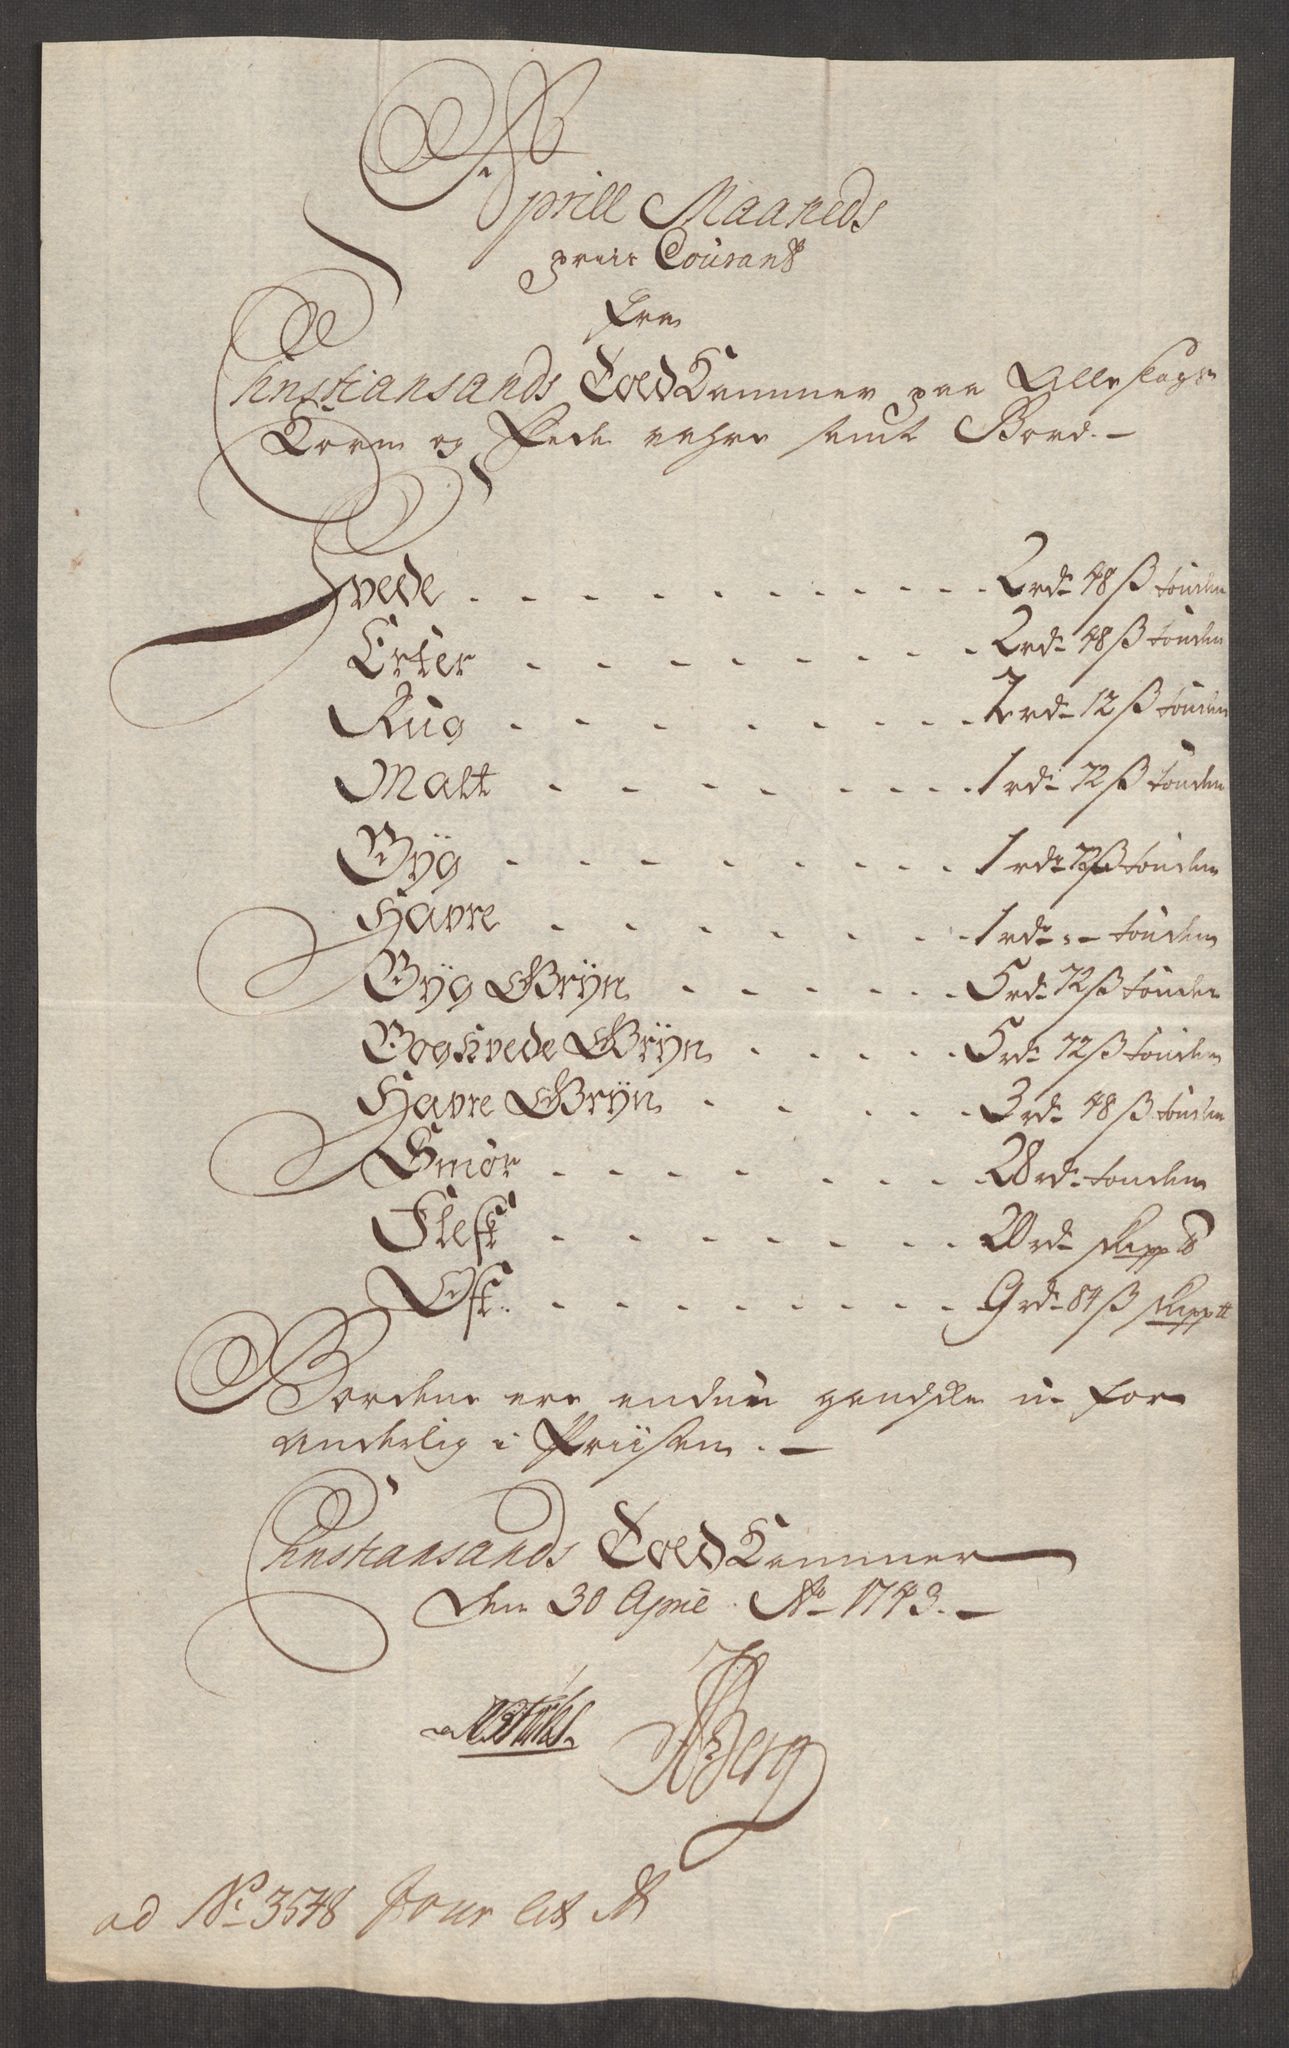 Aprill Maaneds
priis Courant
fra
Christiansands Told Kammer paa Alle slags
Korn og Fede vahre samt Bord. -
Hvede - - - 2 rd: 48 ß tønden
Erter - - - 2 rd: 48 ß tønden
Rug - - - rd: 12 ß tønden
Malt - - - 1 rd: 72 ß tønden
Byg - - - 1 rd: 72 ß tønden
Havre - - - 1 rd: " - tønden
Byg Gryn - - - 5 rd: 72 ß tønden
Boghvede Gryn - - - 5 rd: 72 ß tønden
Havre Gryn - - - 3 rd: 48 ß tønden
Smør - - - 28 rd: tønden
Flesk - - - 20 rd: skipp ℔
Ost - - - 9 rd: 84 ß skipp ℔
Bordene ere endnu gandske u-for
anderlig i Priisen. -
Christiansands Told Kammer
den 30 April Ao 1743. -
Berg
ad No 3548 Jour Lit A